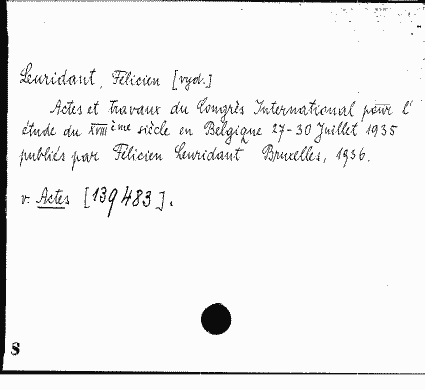 Leuridant, Félicien [vyd.]
Actes et travaux du Congrès International pour l'
étude du XVIIIème siècle en Belgique 27-30 Juillet 1935
publiés par Félicien Leuridant Bruxelles, 1936.
v. Actes [139483].
S